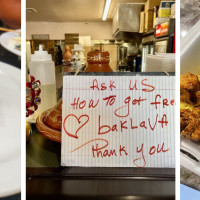 Ask US
How to got free
baklava
Thank you